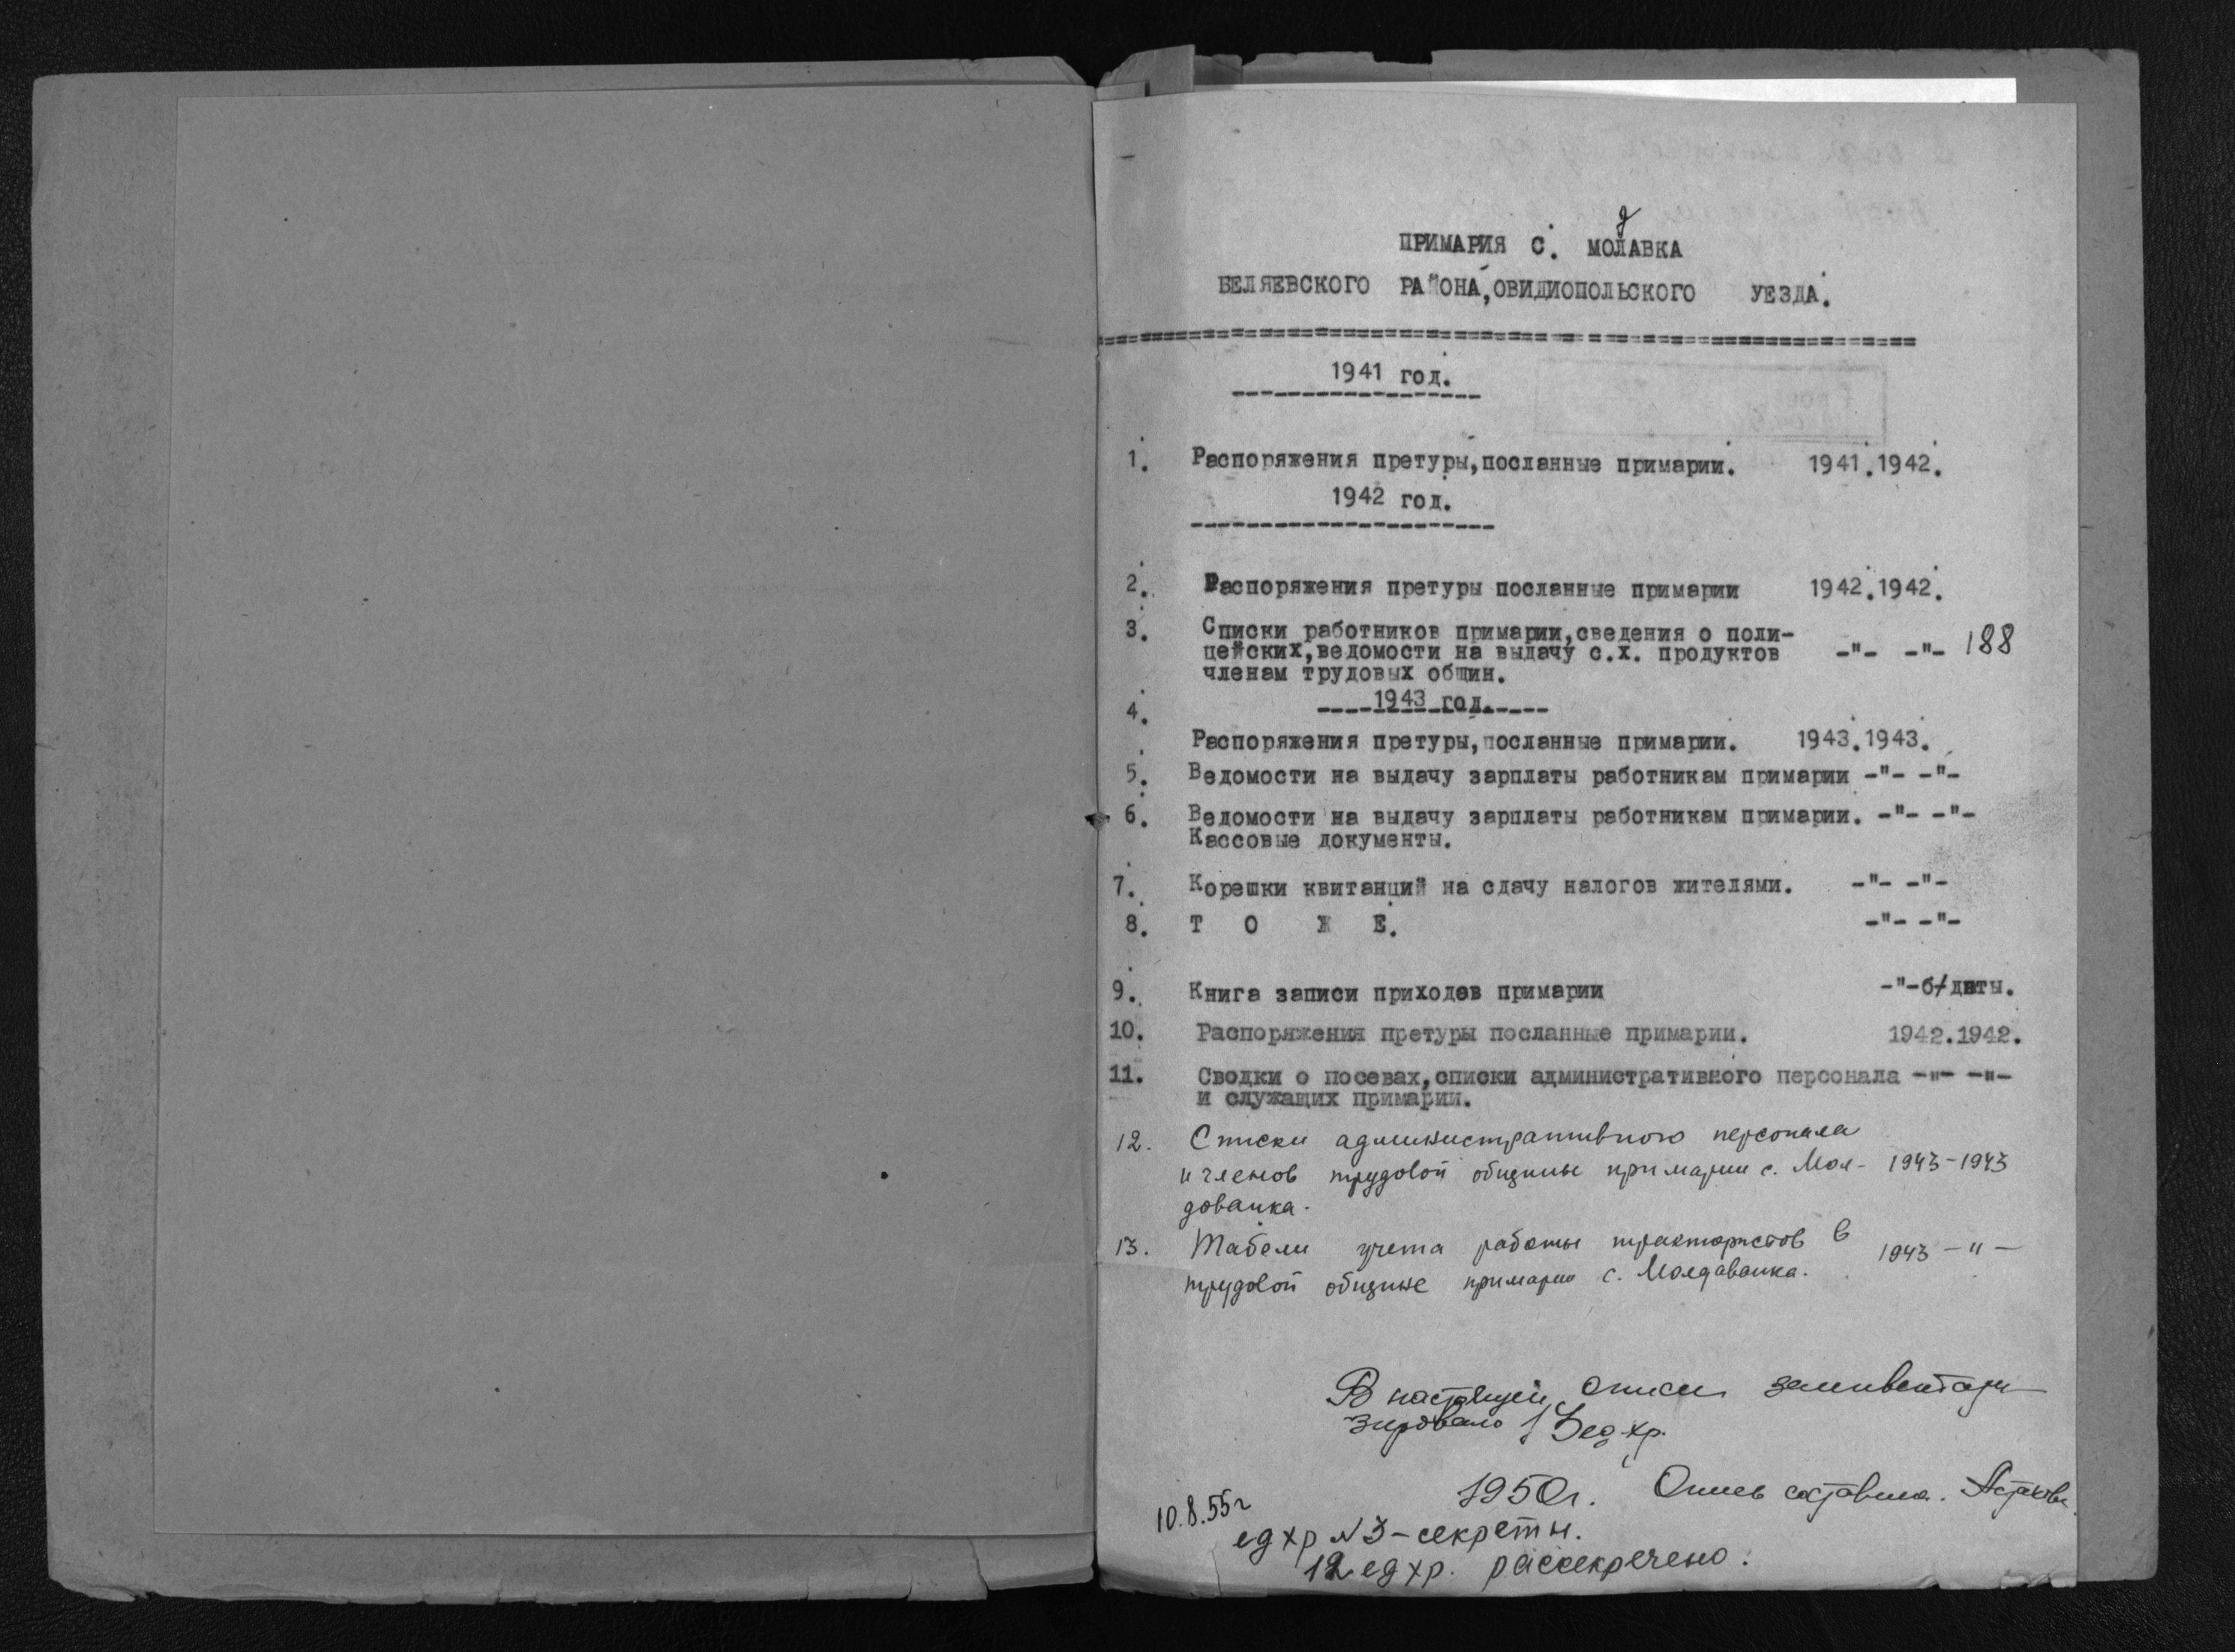 д
ПРИМАРИЯ С. МОЛАВКА
БЕЛЯЕВСКОГО РАЙОНА, ОВИДИОПОЛЬСКОГО УЕЗДА.
1941 год.
1. Распоряжения претуры, посланные примарии. 1941.1942.
1942 год.
2. Распоряжения претуры посланные примарии 1942.1942.
3. Списки работников примарии, сведения о поли-
цейских, ведомости на выдачу с.х. продуктов -"- -"- 188
членам трудовых общин.
4. 1943 год.
Распоряжения претуры, посланные примарии. 1943.1943.
5. Ведомости на выдачу зарплаты работникам примарии -"- -"-
6. Ведомости на выдачу зарплаты работникам примарии. -"- -"-
Кассовые документы.
7. Корешки квитанций на сдачу налогов жителями. -"- -"-
8. Т О Ж Е. -"- -"-
9. Книга записи приходов примарии -"- б/даты.
10. Распоряжения претуры посланные примарии. 1942.1942.
11. Сводки о посевах, списки административного персонала -"- -"-
и служащих примарии.
12. Списки административного персонала
и членов трудовой общины примарии с. Мол- 1943-1943
дованка.
13. Табели учета работы трактористов в 1943 -"-
трудовой общине примарии с. Молдаванка.
В настоящей описи заинвентари
зировано 13 ед. хр.
1950г. Опись составила.
10.8.55г
ед хр N3 - секретн.
12 ед хр. рассекречено.